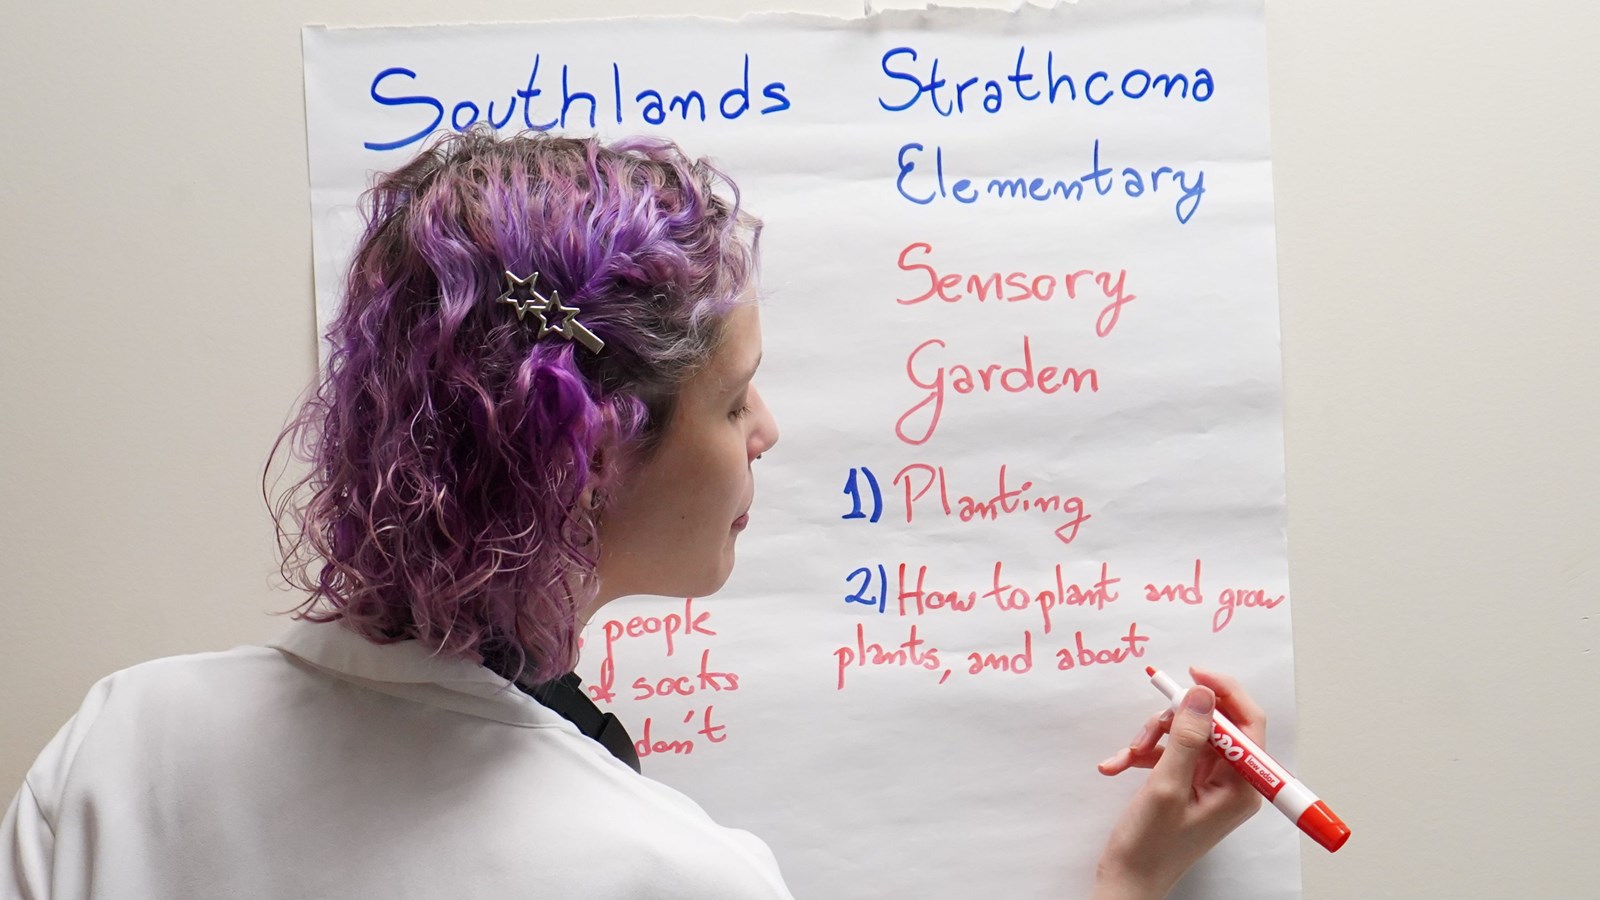 Southlands
people
of socks
don't
Strathcona
Elementary
Sensory
Garden
1) Planting
2) How to plant and grow
plants, and about
Expo
low odor